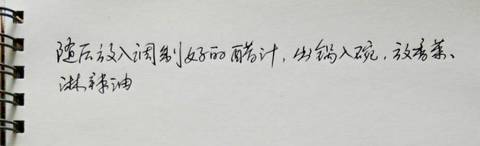 随后放入调制好的醋汁，出锅入碗，放香菜、
淋辣油